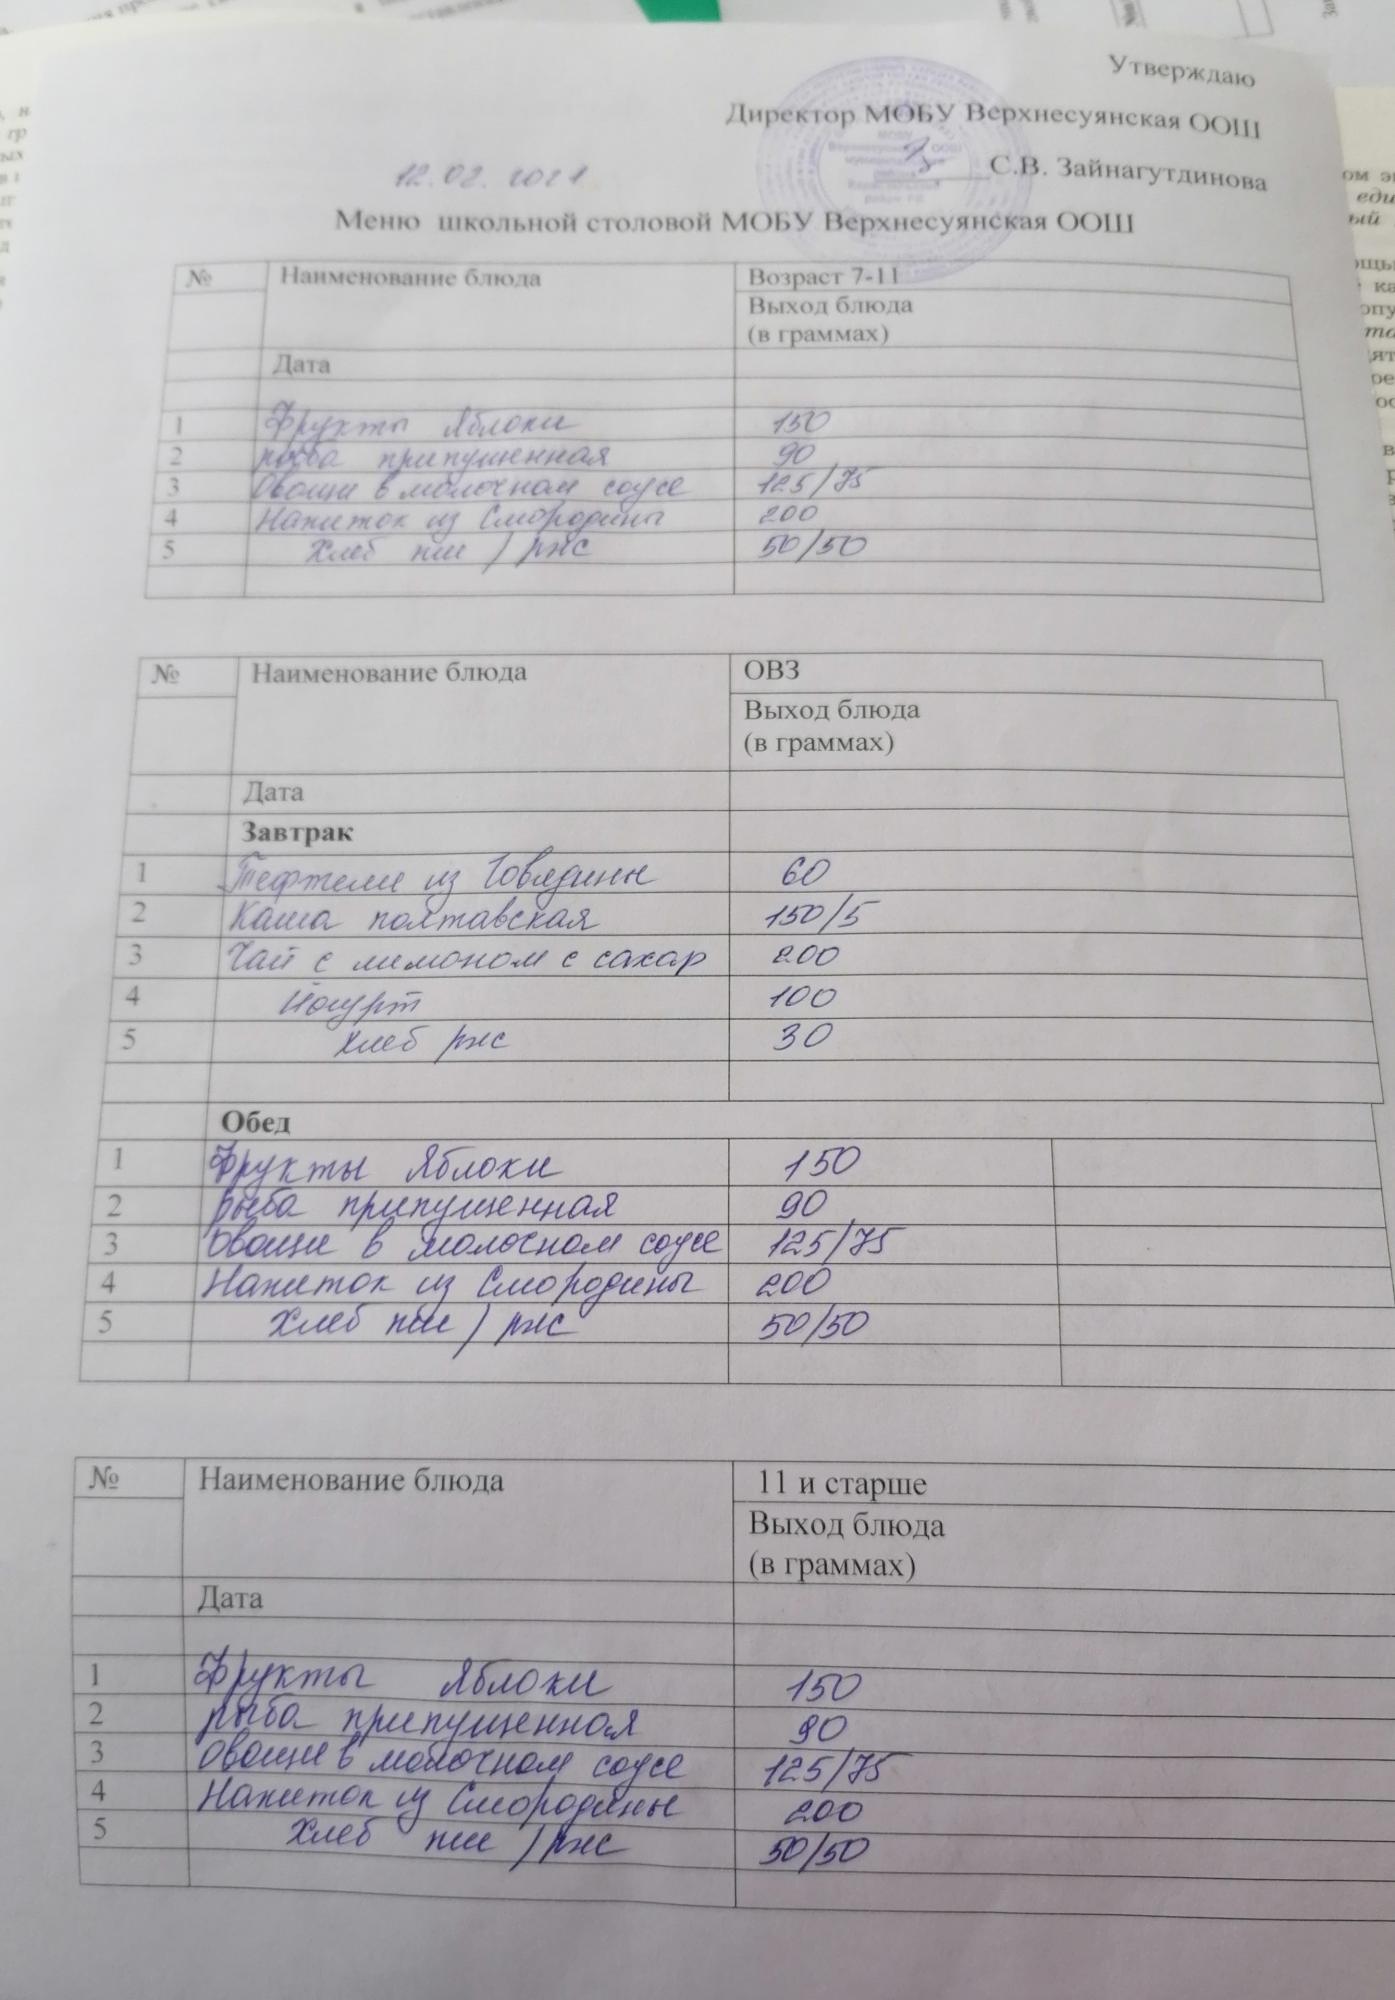 Утверждаю
Директор МОБУ Верхнесуянская ООШ
С.В. Зайнагутдинова
12.02.2021
Меню школьной столовой МОБУ Верхнесуянская ООШ
№ Наименование блюда Возраст 7-11
Выход блюда
(в граммах)
Дата
1 Фрукты Яблоки 150
2 рыба припущенная 90
3 Овощи в молочном соусе 125/75
4 Напиток из Смородины 200
5 Хлеб пш / ржс 50/50
№ Наименование блюда ОВЗ
Выход блюда
(в граммах)
Дата
Завтрак
1 Тефтели из Говядины 60
2 Каша полтавская 150/5
3 Чай с лимоном с сахар 200
4 Йогурт 100
5 Хлеб ржс 30
Обед
1 Фрукты Яблоки 150
2 рыба припущенная 90
3 Овощи в молочном соусе 125/75
4 Напиток из Смородины 200
5 Хлеб пш / ржс 50/50
№ Наименование блюда 11 и старше
Выход блюда
(в граммах)
Дата
1 Фрукты Яблоки 150
2 рыба припущенная 90
3 Овощи в молочном соусе 125/75
4 Напиток из Смородины 200
5 Хлеб пш / ржс 50/50